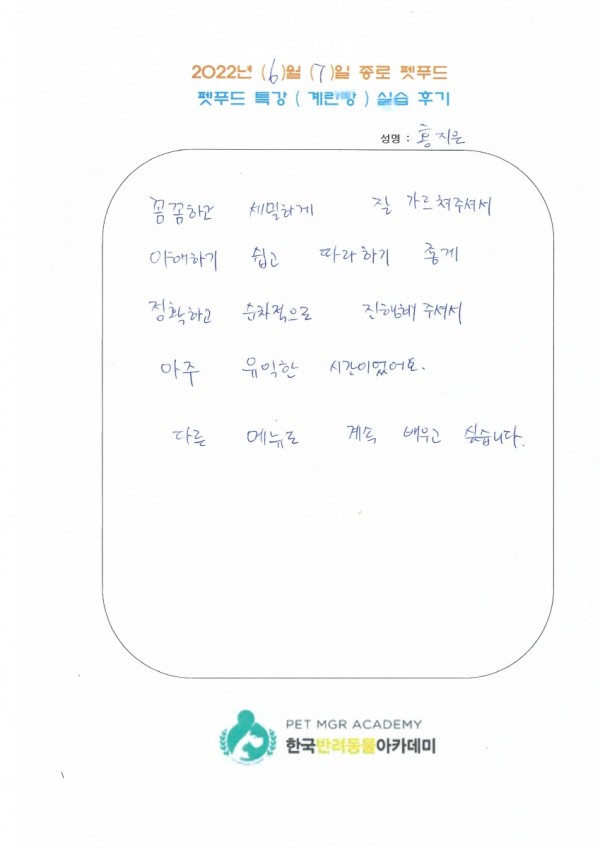 2022년 (6)월 (7)일 종로 펫푸드
펫푸드 특강 ( 계란빵 ) 실습 후기
성명 : 홍지은
꼼꼼하고 세밀하게 잘 가르쳐주셔서
이해하기 쉽고 따라하기 좋게
정확하고 순차적으로 진행해주셔서
아주 유익한 시간이었어요.
다른 메뉴도 계속 배우고 싶습니다.
PET MGR ACADEMY
한국반려동물아카데미